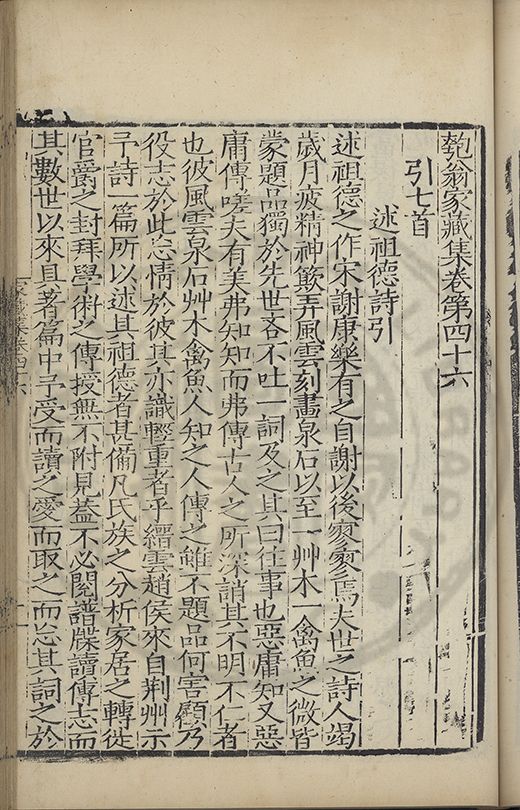 匏翁家藏集卷第四十六
引七首
述祖德詩引
述祖德之作宋謝康樂有之自謝以後寥寥焉夫世之詩人竭
歲月疲精神簸弄風雲刻畫泉石以至一艸木一禽魚之微皆
蒙題品獨於先世吝不吐一詞及之其曰往事也惡庸知又惡
庸傳嗟夫有美弗知知而弗傳古人之所深誚其不明不仁者
也彼風雲泉石艸木禽魚人知之人傳之雖不題品何害顧乃
役志於此忘情於彼其亦識輕重者乎縉雲趙侯來自荆州示
予詩一篇所以述其祖德者甚備凡氏族之分析家居之轉徙
官爵之封拜學術之傳授無不附見葢不必閱譜牒讀傳志而
其數世以來具著篇中予受而讀之愛而取之而恣其詞之於